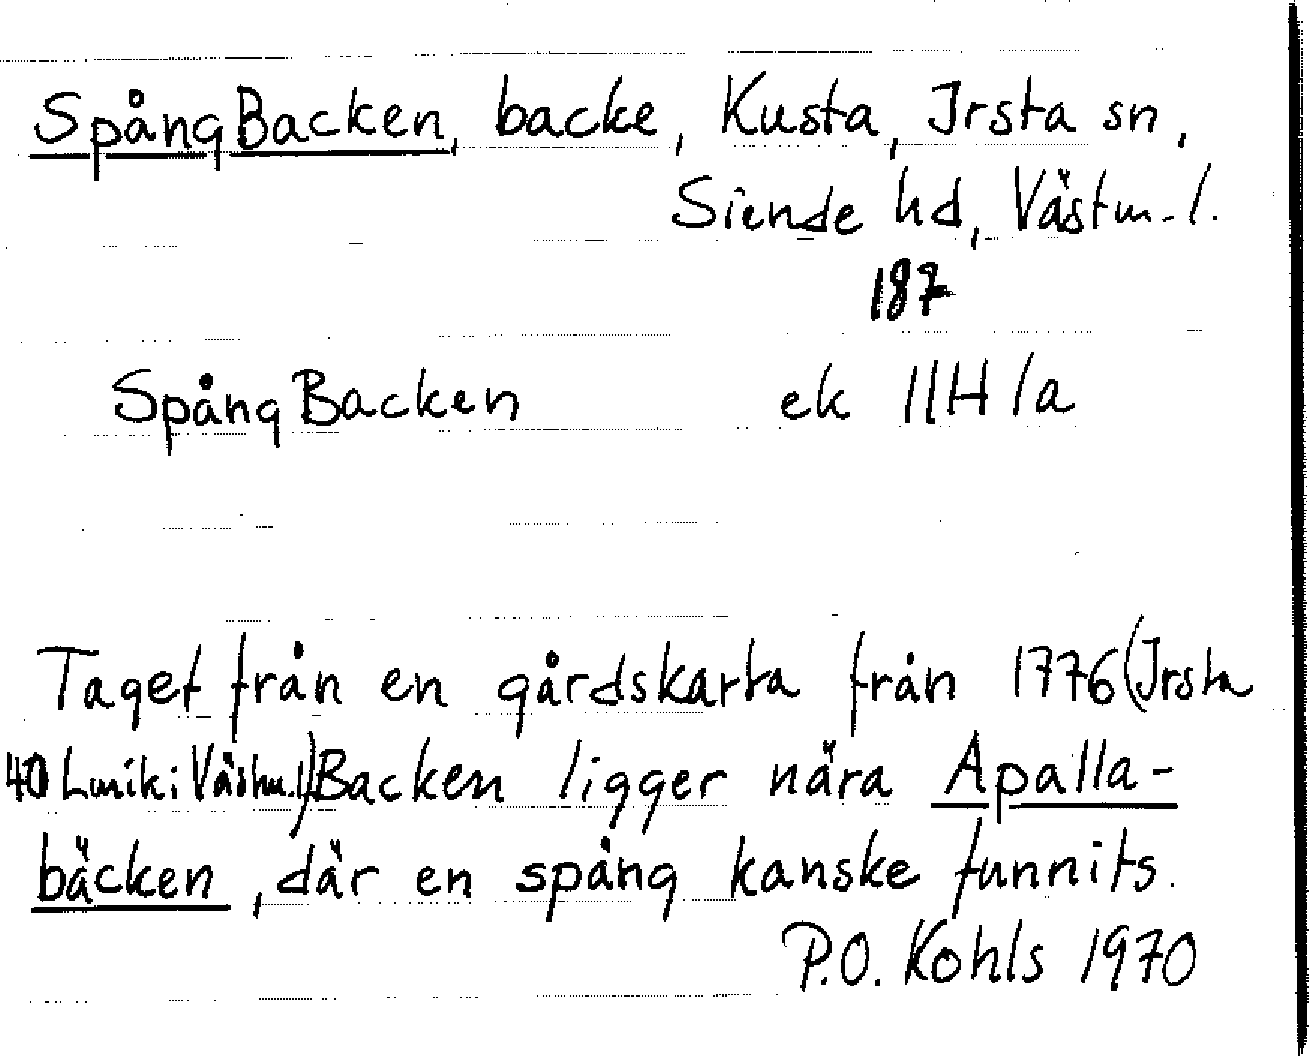 SpångBacken, backe, Kusta, Irsta sn,
Siende hd, Västm.l.
187
SpångBacken ek 11H 1a
Taget från en gårdskarta från 1776 (Irsta
40 Lmik i Västm.l) Backen ligger nära Apalla-
bäcken, där en spång kanske funnits.
P.O. Kohls 1970